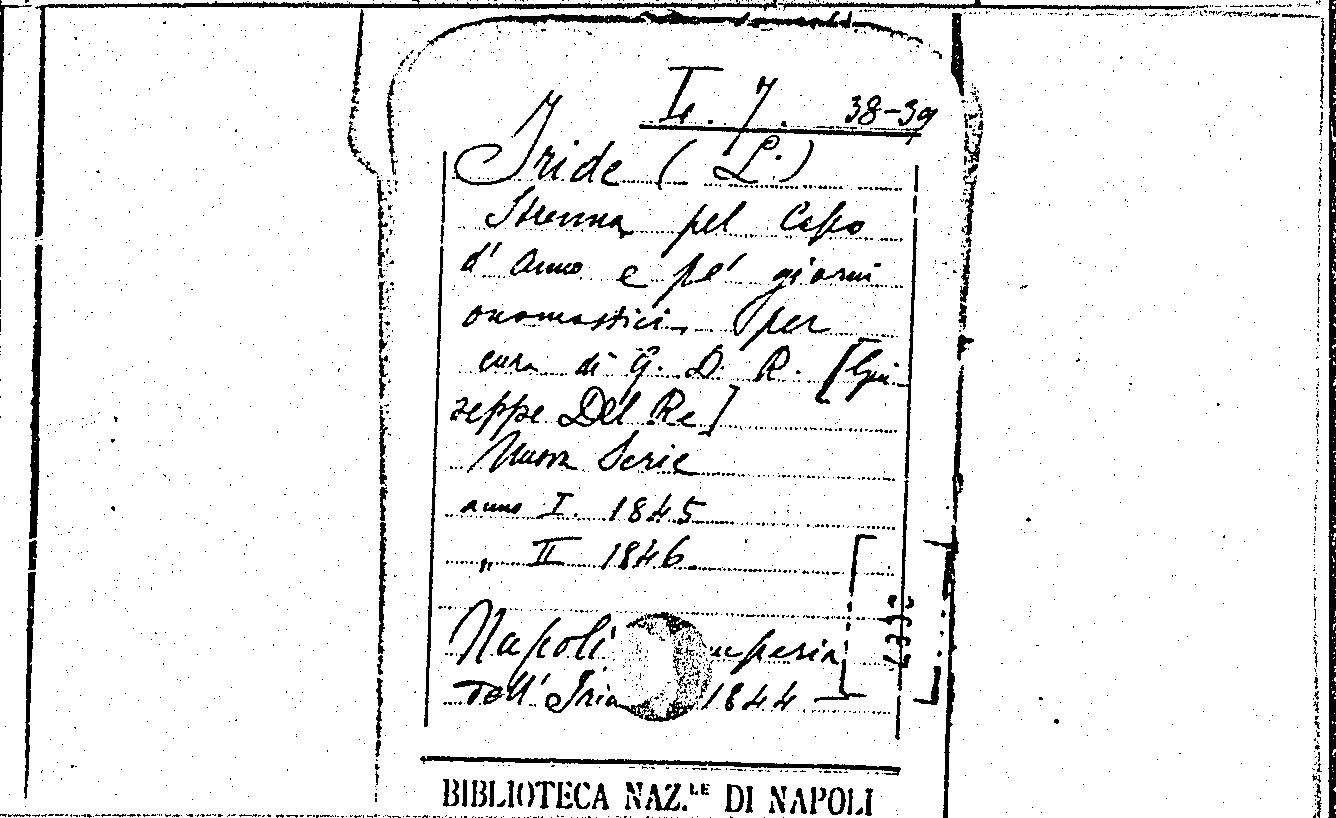 L. 7. 38-39
Iride (L')
Strenna pel Capo
d' anno e pe' giorni
onomastici per
cura di G. D. R. [Giu
seppe Del Re]
Nuova Serie
anno I. 1845
„ II 1846.
Napoli
dell' 1844
BIBLIOTECA NAZ.LE DI NAPOLI